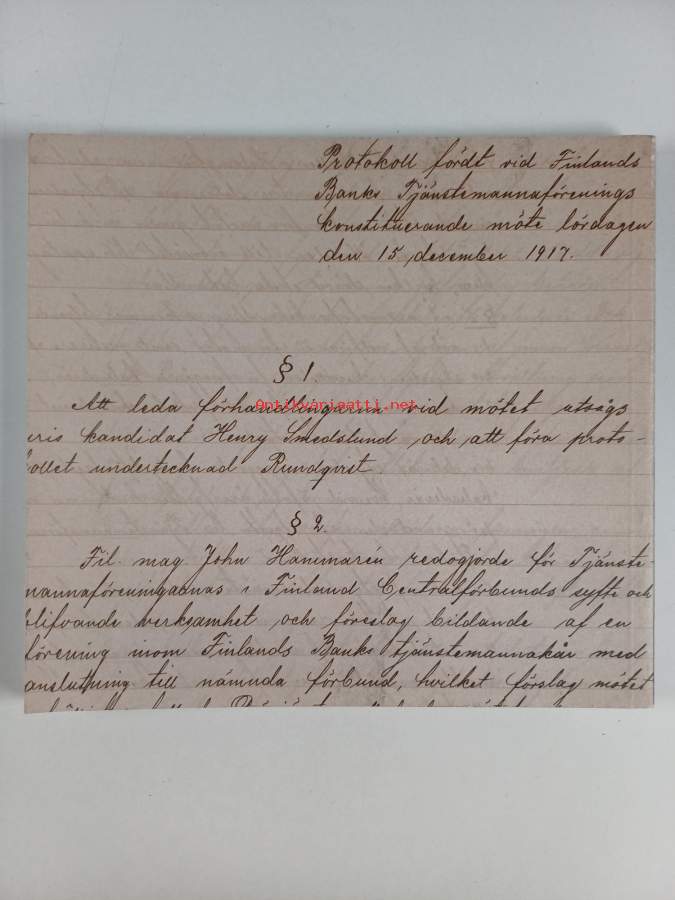 Protokoll fördt vid Finlands
Banks Tjänstemannaförenings
konstituerande möte lördagen
den 15 december 1917.
§ 1.
Att leda förhandlingarna vid mötet utsågs
uris kandidat Henry Smedslund och att föra proto-
ollet undertecknad Rundqvist.
§ 2.
Fil. mag. John Hammarén redogjorde för Tjänste-
mannaföreningarnas i Finland Centralförbunds syfte och
blifvande verksamhet och föreslog bildande af en
förening inom Finlands Banks tjänstemannakår med
anslutning till nämnda förbund, hvilket förslag mötet
Antikvariaatti.net